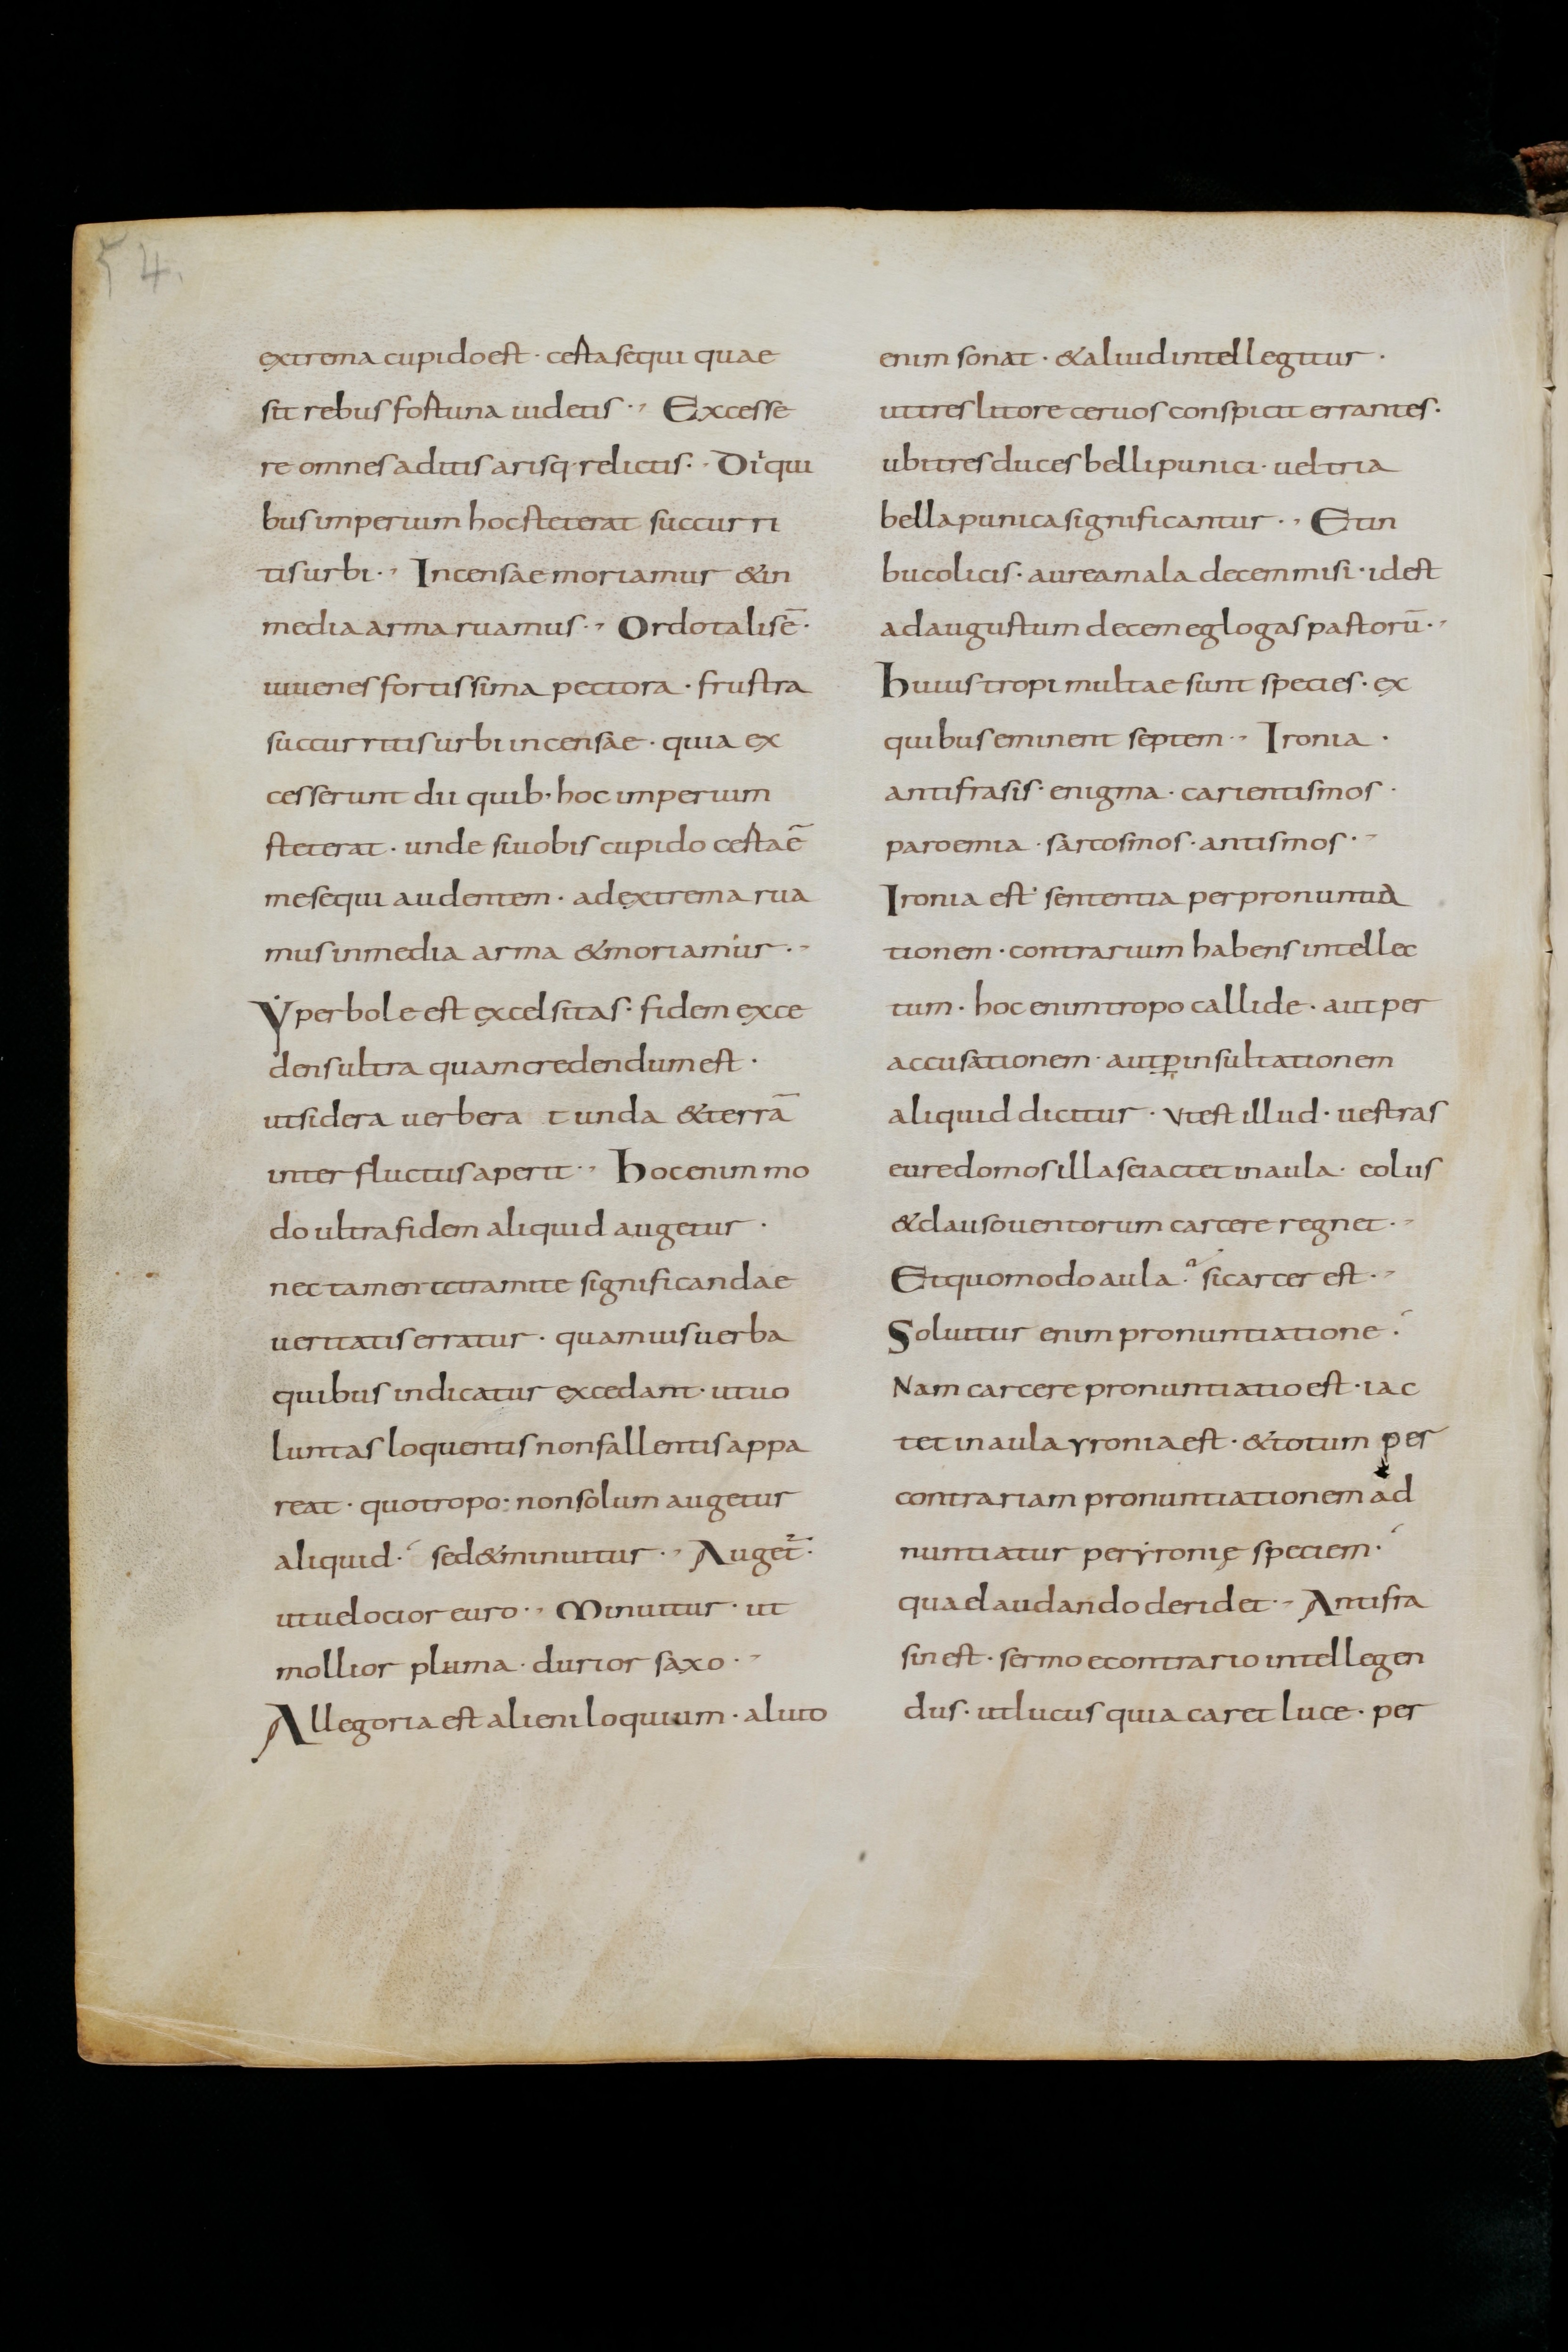 54.
extrema cupido est · certa sequi quae
sit rebus fortuna uidetis ·, Excesse
re omnes aditis arisq· relictis · Di qui
bus imperium hoc steterat succurri
tis urbi ·, Incensae moriamur & in
media arma ruamus ·, Ordo talis ē ·
iuuenes fortissima pectora · frustra
succurritis urbi incensae · quia ex
cesserunt dii quib· hoc imperium
steterat · unde si uobis cupido certa ē
me sequi audentem · ad extrema rua
mus in media arma & moriamur ·,
Yperbole est excelsitas · fidem exce
dens ultra quam credendum est ·
ut sidera uerbera t unda & terrā
inter fluctus aperit ·, hoc enim mo
do ultra fidem aliquid augetur ·
nec tamen
significandae
ueritatis erratur · quamuis uerba
quibus indicatur excedant · ut uo
luntas loquentis non fallentis appa
reat · quo tropo : non solum augetur
aliquid · sed & minuitur ·, Auget̄ ·
ut uelocior euro ·, Minuitur · ut
mollior pluma · durior saxo ·,
Allegoria est alieniloquium · aliuto
enim sonat · & aliud intellegitur ·
ut tres litore ceruos conspicit errantes ·
ubi tres duces belli punici · uel tria
bella punica significantur ·, Et in
bucolicis · aurea mala decem misi · id est
ad augustum decem eglogas pastorū ·,
huius tropi multae sunt species · ex
quibus eminent septem ·, Ironia ·
antifrasis · enigma · carientismos ·
paroemia · sarcosmos · antismos ·,
Ironia est · sententia per pronuntia
tionem · contrarium habens intellec
tum · hoc enim tropo callide · aut per
accusationem · aut ꝑ insultationem
aliquid dicitur · Vt est illud · uestras
eure domos illa se iactet in aula · eolus
& clauso uentorum carcere regnet ·,
Et quomodo aula · a si carcer est ·,
Soluitur enim pronuntiatione ·
Nam carcere pronuntiatio est · iac
tet in aula yronia est · & totum per
contrariam pronuntiationem ad
nuntiatur per yronię speciem ·
quae laudando deridet ·, Antifra
sin est · sermo e contrario intellegen
dus · ut lucus quia caret luce · per